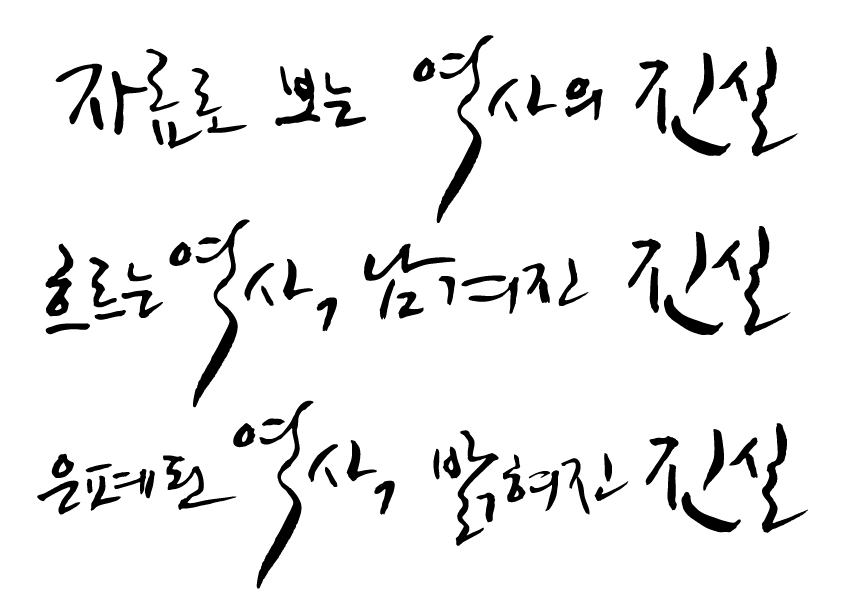 자료로 보는 역사의 진실
흐르는 역사, 남겨진 진실
은폐된 역사, 밝혀진 진실